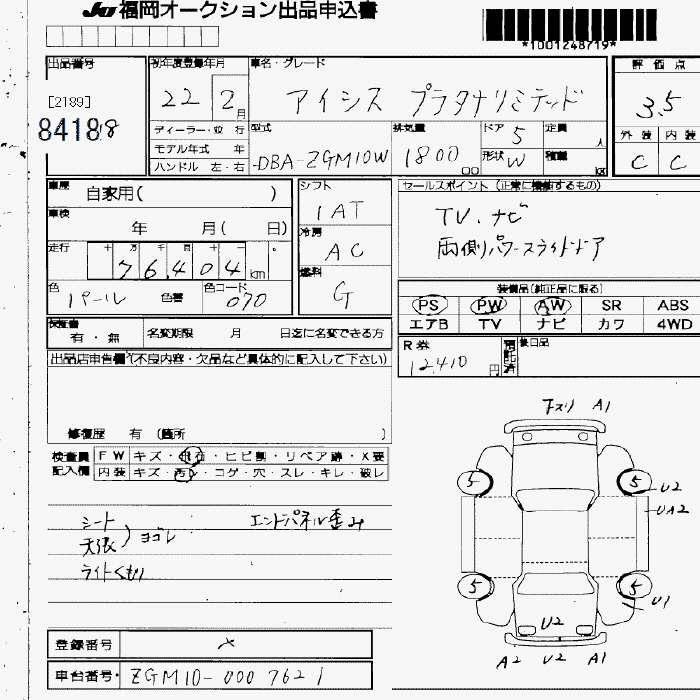 JU 福岡オークション出品申込書
*1001248719*
出品番号 初年度登録年月 車名・グレード 評価点
[2189] 22 2月 アイシス プラタナリミテッド 3.5
84188
ディーラー・並 行 型式 排気量 ドア 5 定員 人 外装 内装
モデル年式 年 DBA-ZGM10W 1800 cc 形状 W 積載 C C
ハンドル 左・右
車歴 自家用( ) シフト セールスポイント (正常に機能するもの)
1AT TV.ナビ
車検 年 月( 日) 冷房 両側パワースライドドア
AC
走行 十 万 千 百 十 一
76,404 km 燃料
G 装備品(純正品に限る)
色 1パール 色番 色コード 070 PS PW AW SR ABS
エアB TV ナビ カワ 4WD
保証書 有・無 名変期限 月 日迄に名変できる方 R券 12,410円 預託済 後日品
出品店申告欄(不良内容・欠品など具体的に記入して下さい)
修復歴 有 (箇所 )
検査員 FW キズ・飛石・ヒビ割・リペア跡・X要
記入欄 内装 キズ・汚レ・コゲ・穴・スレ・キレ・破レ
シート
天張 ) ヨゴレ エンドパネル歪み
ライトくもり
下スリ A1
5 5 U2
UA2
5 5 U1
U2
A2 U2 A1
登録番号 メ
車台番号 ZGM10-0007621